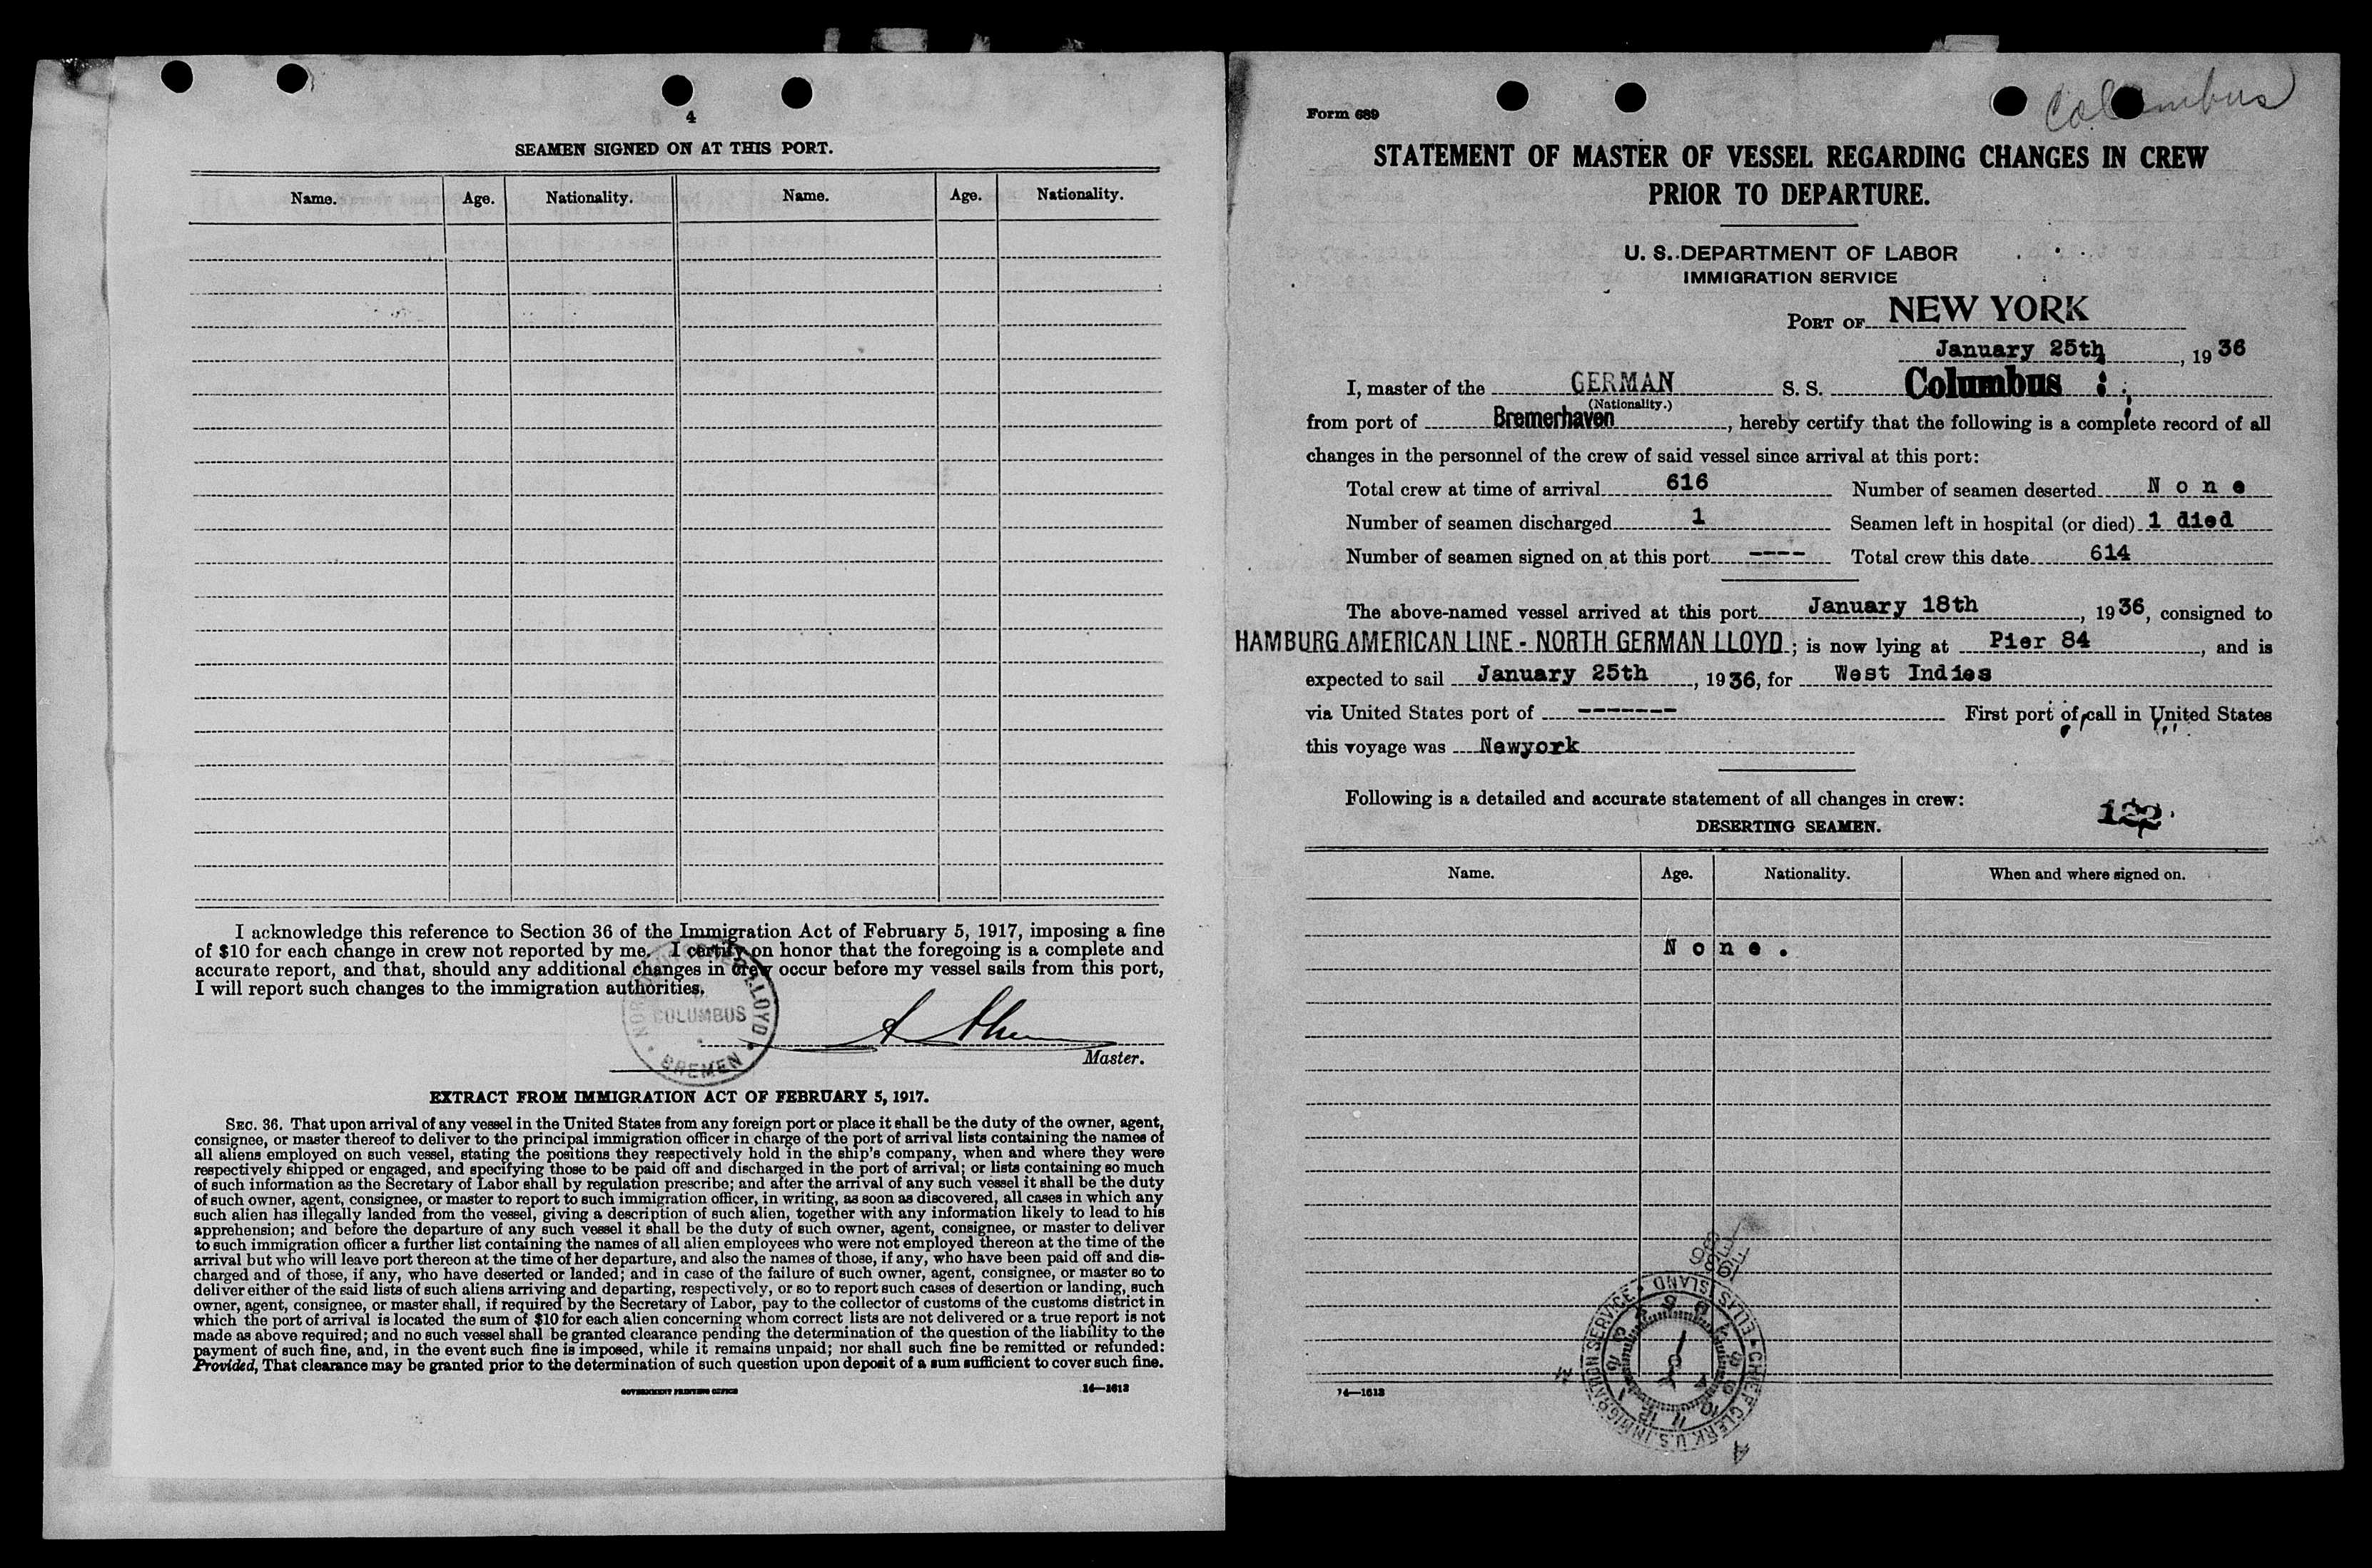 4
SEAMEN SIGNED ON AT THIS PORT.
Name. Age. Nationality. Name. Age. Nationality.
I acknowledge this reference to Section 36 of the Immigration Act of February 5, 1917, imposing a fine
of $10 for each change in crew not reported by me. I certify on honor that the foregoing is a complete and
accurate report, and that, should any additional changes in crew occur before my vessel sails from this port,
I will report such changes to the immigration authorities.
LLOYD
COLUMBUS
BREMEN
Master.
EXTRACT FROM IMMIGRATION ACT OF FEBRUARY 5, 1917.
SEC. 36. That upon arrival of any vessel in the United States from any foreign port or place it shall be the duty of the owner, agent,
consignee, or master thereof to deliver to the principal immigration officer in charge of the port of arrival lists containing the names of
all aliens employed on such vessel, stating the positions they respectively hold in the ship's company, when and where they were
respectively shipped or engaged, and specifying those to be paid off and discharged in the port of arrival; or lists containing so much
of such information as the Secretary of Labor shall by regulation prescribe; and after the arrival of any such vessel it shall be the duty
of such owner, agent, consignee, or master to report to such immigration officer, in writing, as soon as discovered, all cases in which any
such alien has illegally landed from the vessel, giving a description of such alien, together with any information likely to lead to his
apprehension; and before the departure of any such vessel it shall be the duty of such owner, agent, consignee, or master to deliver
to such immigration officer a further list containing the names of all alien employees who were not employed thereon at the time of the
arrival but who will leave port thereon at the time of her departure, and also the names of those, if any, who have been paid off and dis-
charged and of those, if any, who have deserted or landed; and in case of the failure of such owner, agent, consignee, or master so to
deliver either of the said lists of such aliens arriving and departing, respectively, or so to report such cases of desertion or landing, such
owner, agent, consignee, or master shall, if required by the Secretary of Labor, pay to the collector of customs of the customs district in
which the port of arrival is located the sum of $10 for each alien concerning whom correct lists are not delivered or a true report is not
made as above required; and no such vessel shall be granted clearance pending the determination of the question of the liability to the
payment of such fine, and, in the event such fine is imposed, while it remains unpaid; nor shall such fine be remitted or refunded:
Provided, That clearance may be granted prior to the determination of such question upon deposit of a sum sufficient to cover such fine.
GOVERNMENT PRINTING OFFICE 14—1613
Columbus
Form 689
STATEMENT OF MASTER OF VESSEL REGARDING CHANGES IN CREW
PRIOR TO DEPARTURE.
U. S. DEPARTMENT OF LABOR
IMMIGRATION SERVICE
PORT OF NEW YORK
January 25th, 1936
I, master of the GERMAN S. S. Columbus
(Nationality.)
from port of Bremerhaven, hereby certify that the following is a complete record of all
changes in the personnel of the crew of said vessel since arrival at this port:
Total crew at time of arrival 616 Number of seamen deserted None
Number of seamen discharged 1 Seamen left in hospital (or died) 1 died
Number of seamen signed on at this port ---- Total crew this date 614
The above-named vessel arrived at this port January 18th, 1936, consigned to
HAMBURG AMERICAN LINE - NORTH GERMAN LLOYD; is now lying at Pier 84, and is
expected to sail January 25th, 1936, for West Indies
via United States port of ------- First port of call in United States
this voyage was Newyork
Following is a detailed and accurate statement of all changes in crew:
122
DESERTING SEAMEN.
Name. Age. Nationality. When and where signed on.
None.
CHIEF CLERK U.S. IMMIGRATION SERVICE • ELLIS ISLAND
14—1613